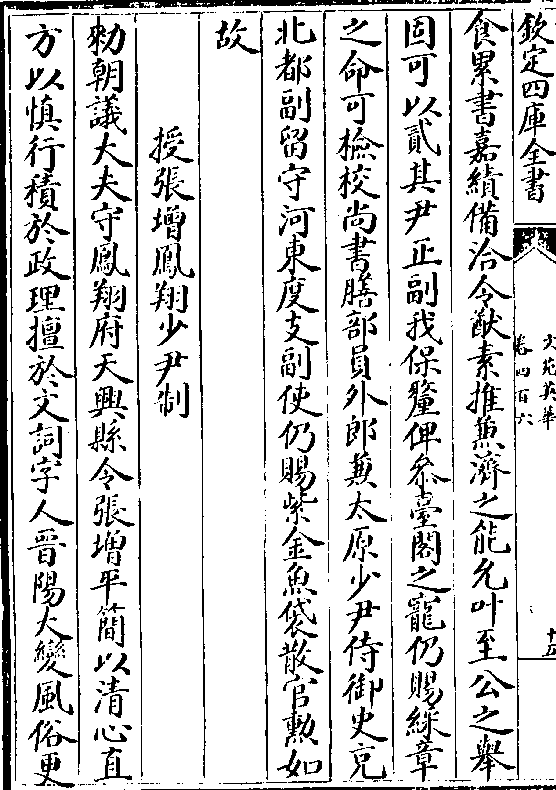 欽定四庫全書
文苑英華
卷四百六
十五
食累書嘉績備洽令猷素推蕪濟之能允叶至公之舉
固可以貳其尹正副我保釐俾叅臺閣之寵仍賜綵章
之命可檢校尚書膳部員外郎兼太原少尹侍御史充
北都副留守河東度支副使仍賜紫金魚袋散官勲如
故
授張增鳳翔少尹制
勑朝議大夫守鳳翔府天興縣令張増平簡以清心直
方以慎行積於政理擅於文詞字人晉陽大變風俗更